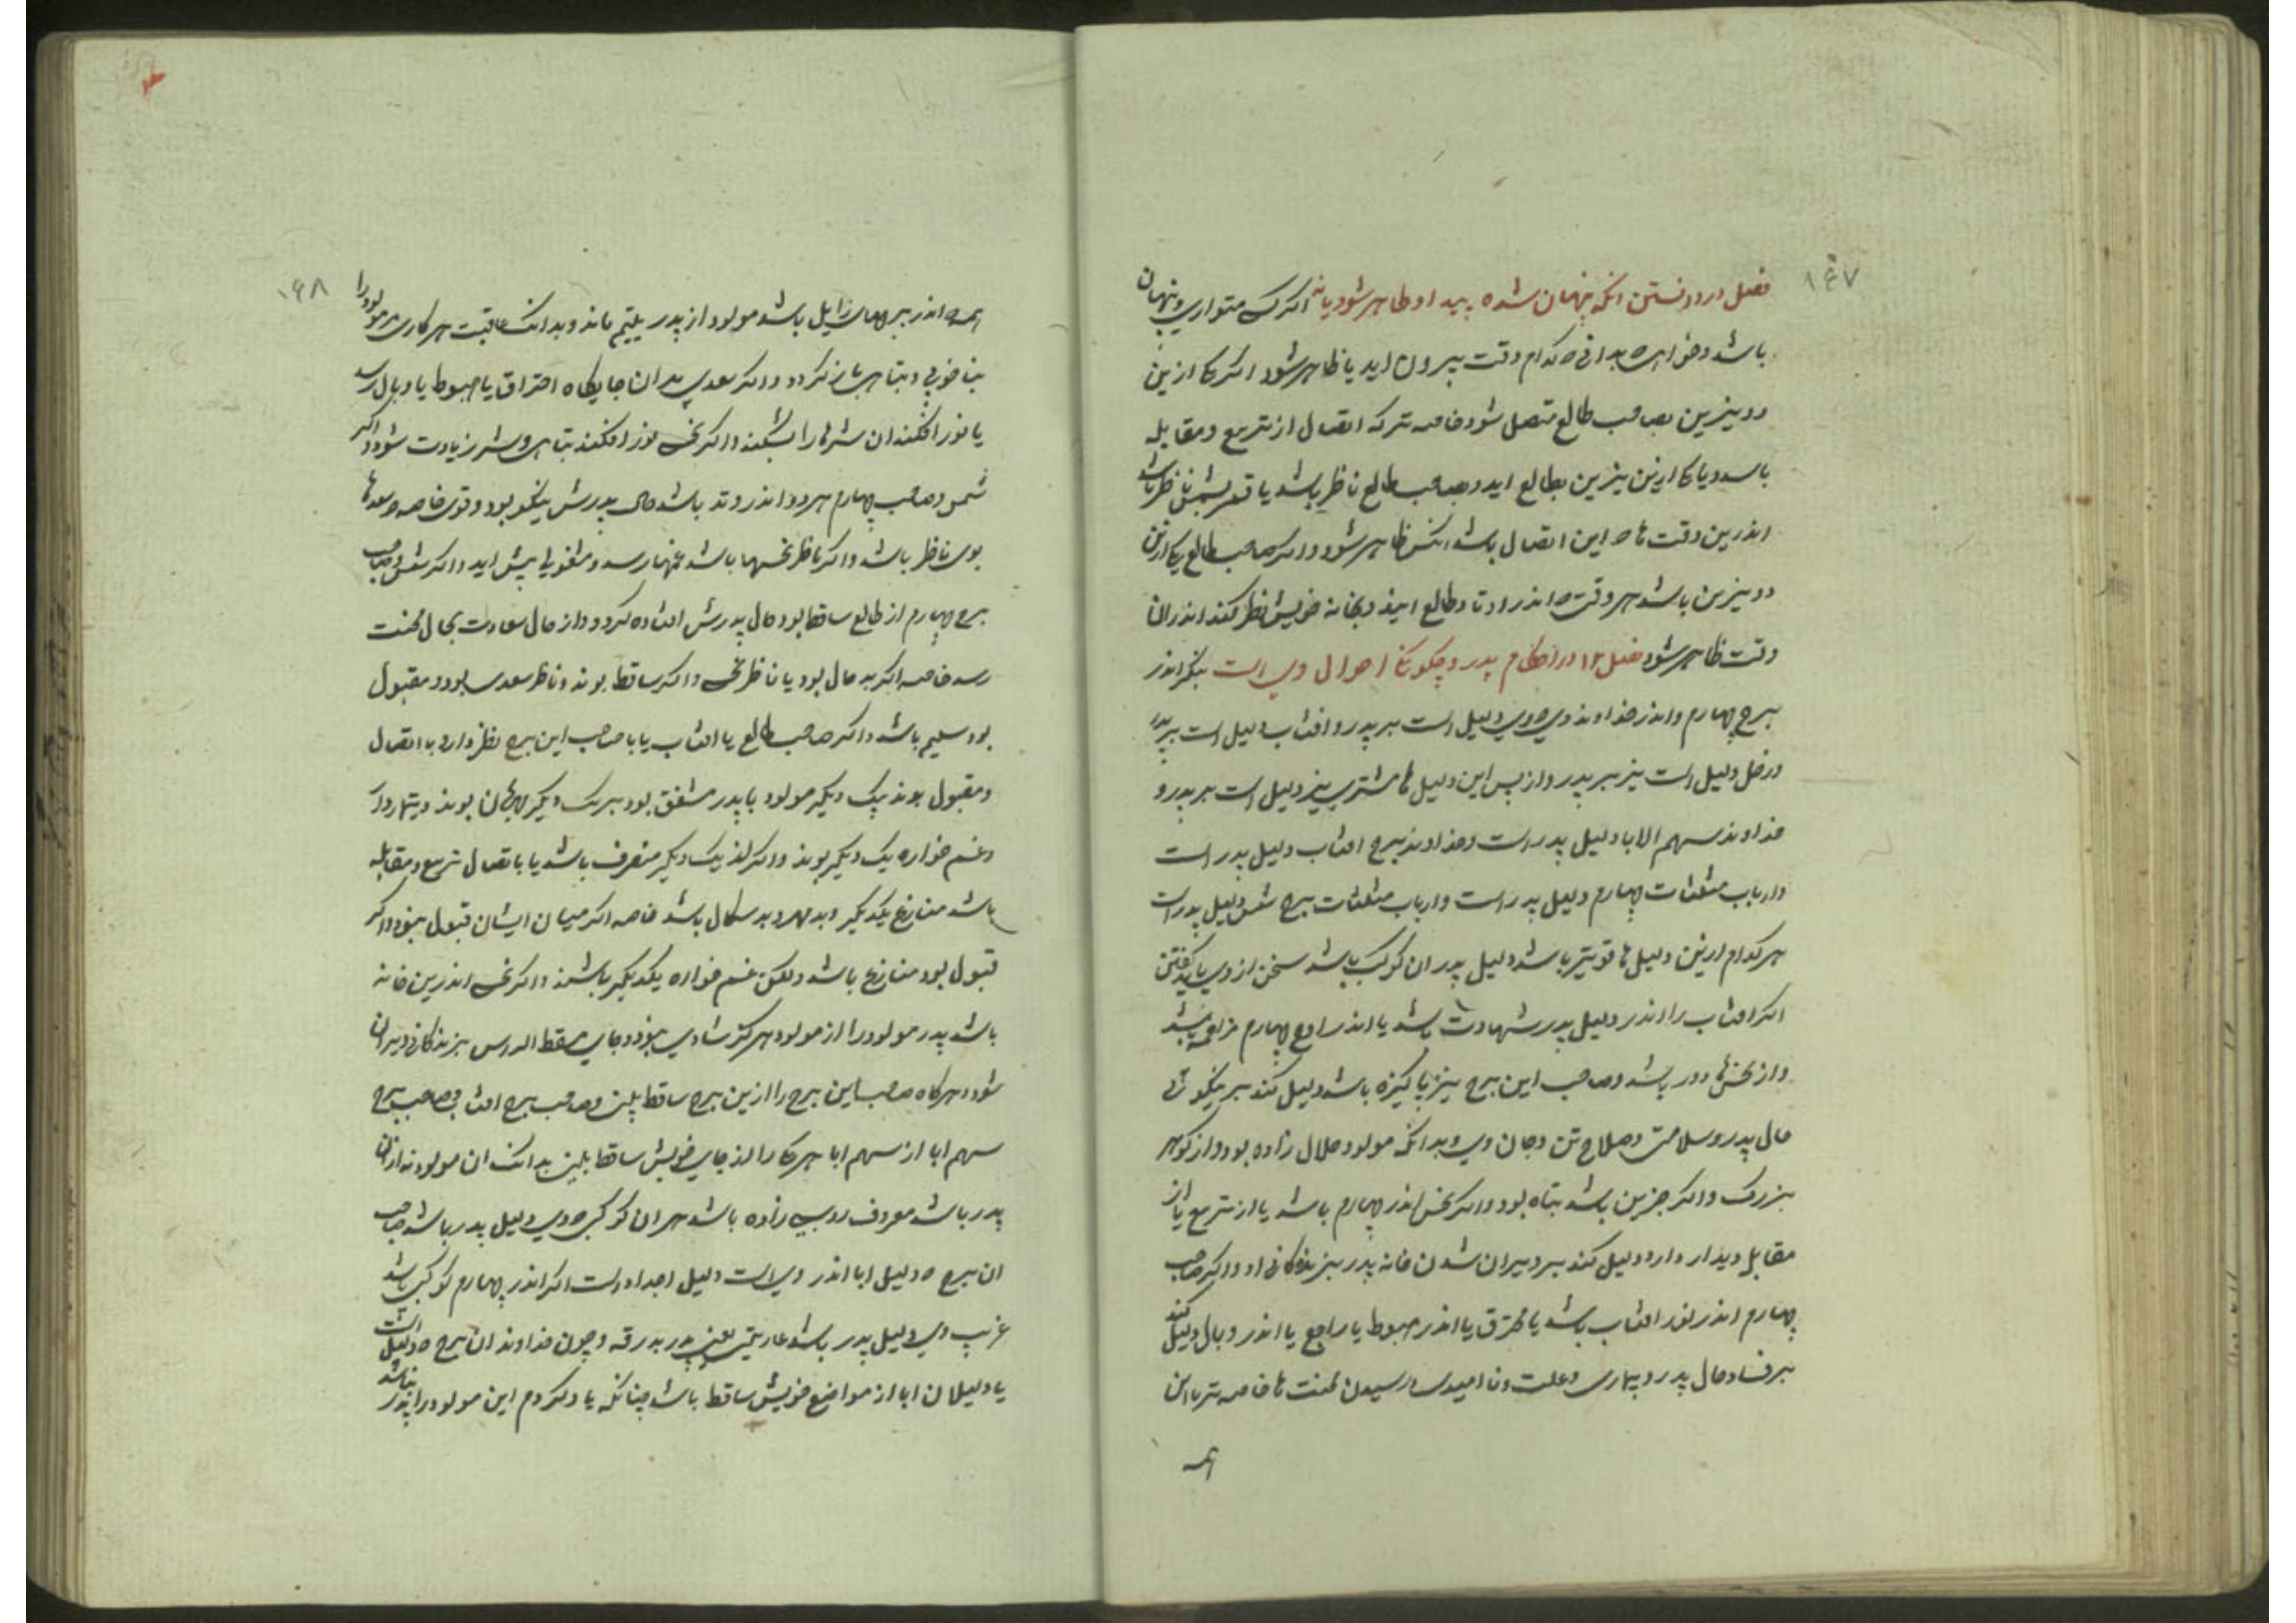 ۱۶۷
فصل در دانستن انکه پنهان شده پیدا و ظاهر شود یا نه اکر کسی متواری و پنهان
باشد و خواهی بدانی که کدام وقت بیرون اید یا ظاهر شود اکر یکی ازین
دو نیرین بصاحب طالع متصل شود خاصه تر که اتصال از تربیع و مقابله
باشد و یا یکی ازین نیرین بطالع اید و بصاحب طالع ناظر باشد یا قمر بشمس ناظر باشد
اندرین وقت که این اتصال باشد انکس ظاهر شود و اکر صاحب طالع یکی ازین
دو نیرین باشد هر وقت که اندر اوتاد طالع ایند و بخانه خویش نظر کند اندر ان
وقت ظاهر شود فصل ۱۲ در احکام پدر و چکونکی احوال وی است بنکر اندر
برج چهارم و اندر خداوند وی که وی دلیل است بر پدر و افتاب دلیل است بر پدر
و زحل دلیل است نیز بر پدر و از پس این دلیل ها مشتری نیز دلیل است بر پدر و
خداوند سهم الابا دلیل پدر است و خداوند برج افتاب دلیل پدر است
و ارباب مثلثات چهارم دلیل پدر است و ارباب مثلثات برج شمس دلیل پدر است
هر کدام ازین دلیل ها قویتر باشد دلیل پدر ان کوکب باشد سخن از وی باید کفتن
اکر افتاب را اندر دلیل پدر شهادت باشد یا اندر چهارم
و از نحس ها دور باشد و صاحب این برج نیز پاکیزه باشد دلیل کند بر نیکوئی
حال پدر و سلامتی و صلاح تن و جان وی و بدانکه مولود حلال زاده بود و از کوهر
بزرک و اکر جزین باشد تباه بود و اکر نحس اندر چهارم باشد یا از تربیع یا از
مقابل دیدار دارد دلیل کند بر ویران شدن خانه پدر بزندکانی او و اکر صاحب
چهارم اندر نور افتاب باشد یا محترق یا اندر هبوط یا راجع یا اندر وبال دلیل کند
بر فساد حال پدر و بیماری و علت و نا امیدی و رسیدن محنت ها خاصه تر با این
همه
۱۶۸
همه اندر برجهای زایل باشد مولود از پدر یتیم ماند و بدانک عاقبت هر کاری مر مولود را
بناخوبی و تباهی باز کردد و اکر سعدی بدان جایکاه احتراق یا هبوط یا وبال رسد
یا نور افکند ان شرها را بشکند و اکر نحس نور افکند تباهی و شر زیادت شود و اکر
شمس و صاحب چهارم هر دو اندر وتد باشد حال پدرش نیکو بود و قوی خاصه که سعدها
بوی ناظر باشد و اکر ناظر نحسها باشد غمها رسد و مشغولی پیش اید و اکر شمس و صاحب
برج چهارم از طالع ساقط بود حال پدرش افتاده کردد و از حال سعادت بحال محنت
رسد خاصه اکر بد حال بود یا ناظر نحس و اکر ساقط بوند و ناظر سعدی بود و مقبول
بود سلیم باشد و اکر صاحب طالع یا افتاب یا با صاحب این برج نظر دارد با اتصال
و مقبول بوند یک دیکر مولود با پدر مشفق بود بر یک دیکر مهربان بوند و تیماردار
و غم خواره یک دیکر بوند و اکر از یک دیکر منصرف باشد یا باتصال تربیع و مقابله
باشد منازع یکدیکر و بد مهر و بد سکال باشد خاصه اکر میان ایشان قبول نبود و اکر
قبول بود منازع باشد ولکن غم خواره یکدیکر باشند و اکر نحس اندرین خانه
باشد پدر مولود را از مولود هرکز شادی نبود و جای مسقط الراس بزندکانی ویران
شود و هرکاه صاحب این برج را ازین برج ساقط بینی و صاحب برج افتاب و صاحب برج
سهم ابا از سهم ابا هر یکی را از جای خویش ساقط بینی بدانک ان مولود نه از ان
پدر باشد معروف زاده باشد هر ان کوکبی که وی دلیل پدر باشد صاحب
ان برج که دلیل ابا اندر وی است دلیل اجداد است اکر اندر چهارم کوکبی باشد
غریب وی دلیل پدر باشد عاریتی یعنی پدر و چون خداوند ان برج که دلیل است
یا دلیلان ابا از مواضع خویش ساقط باشد چنانکه یاد کردم این مولود را پدر نباشد